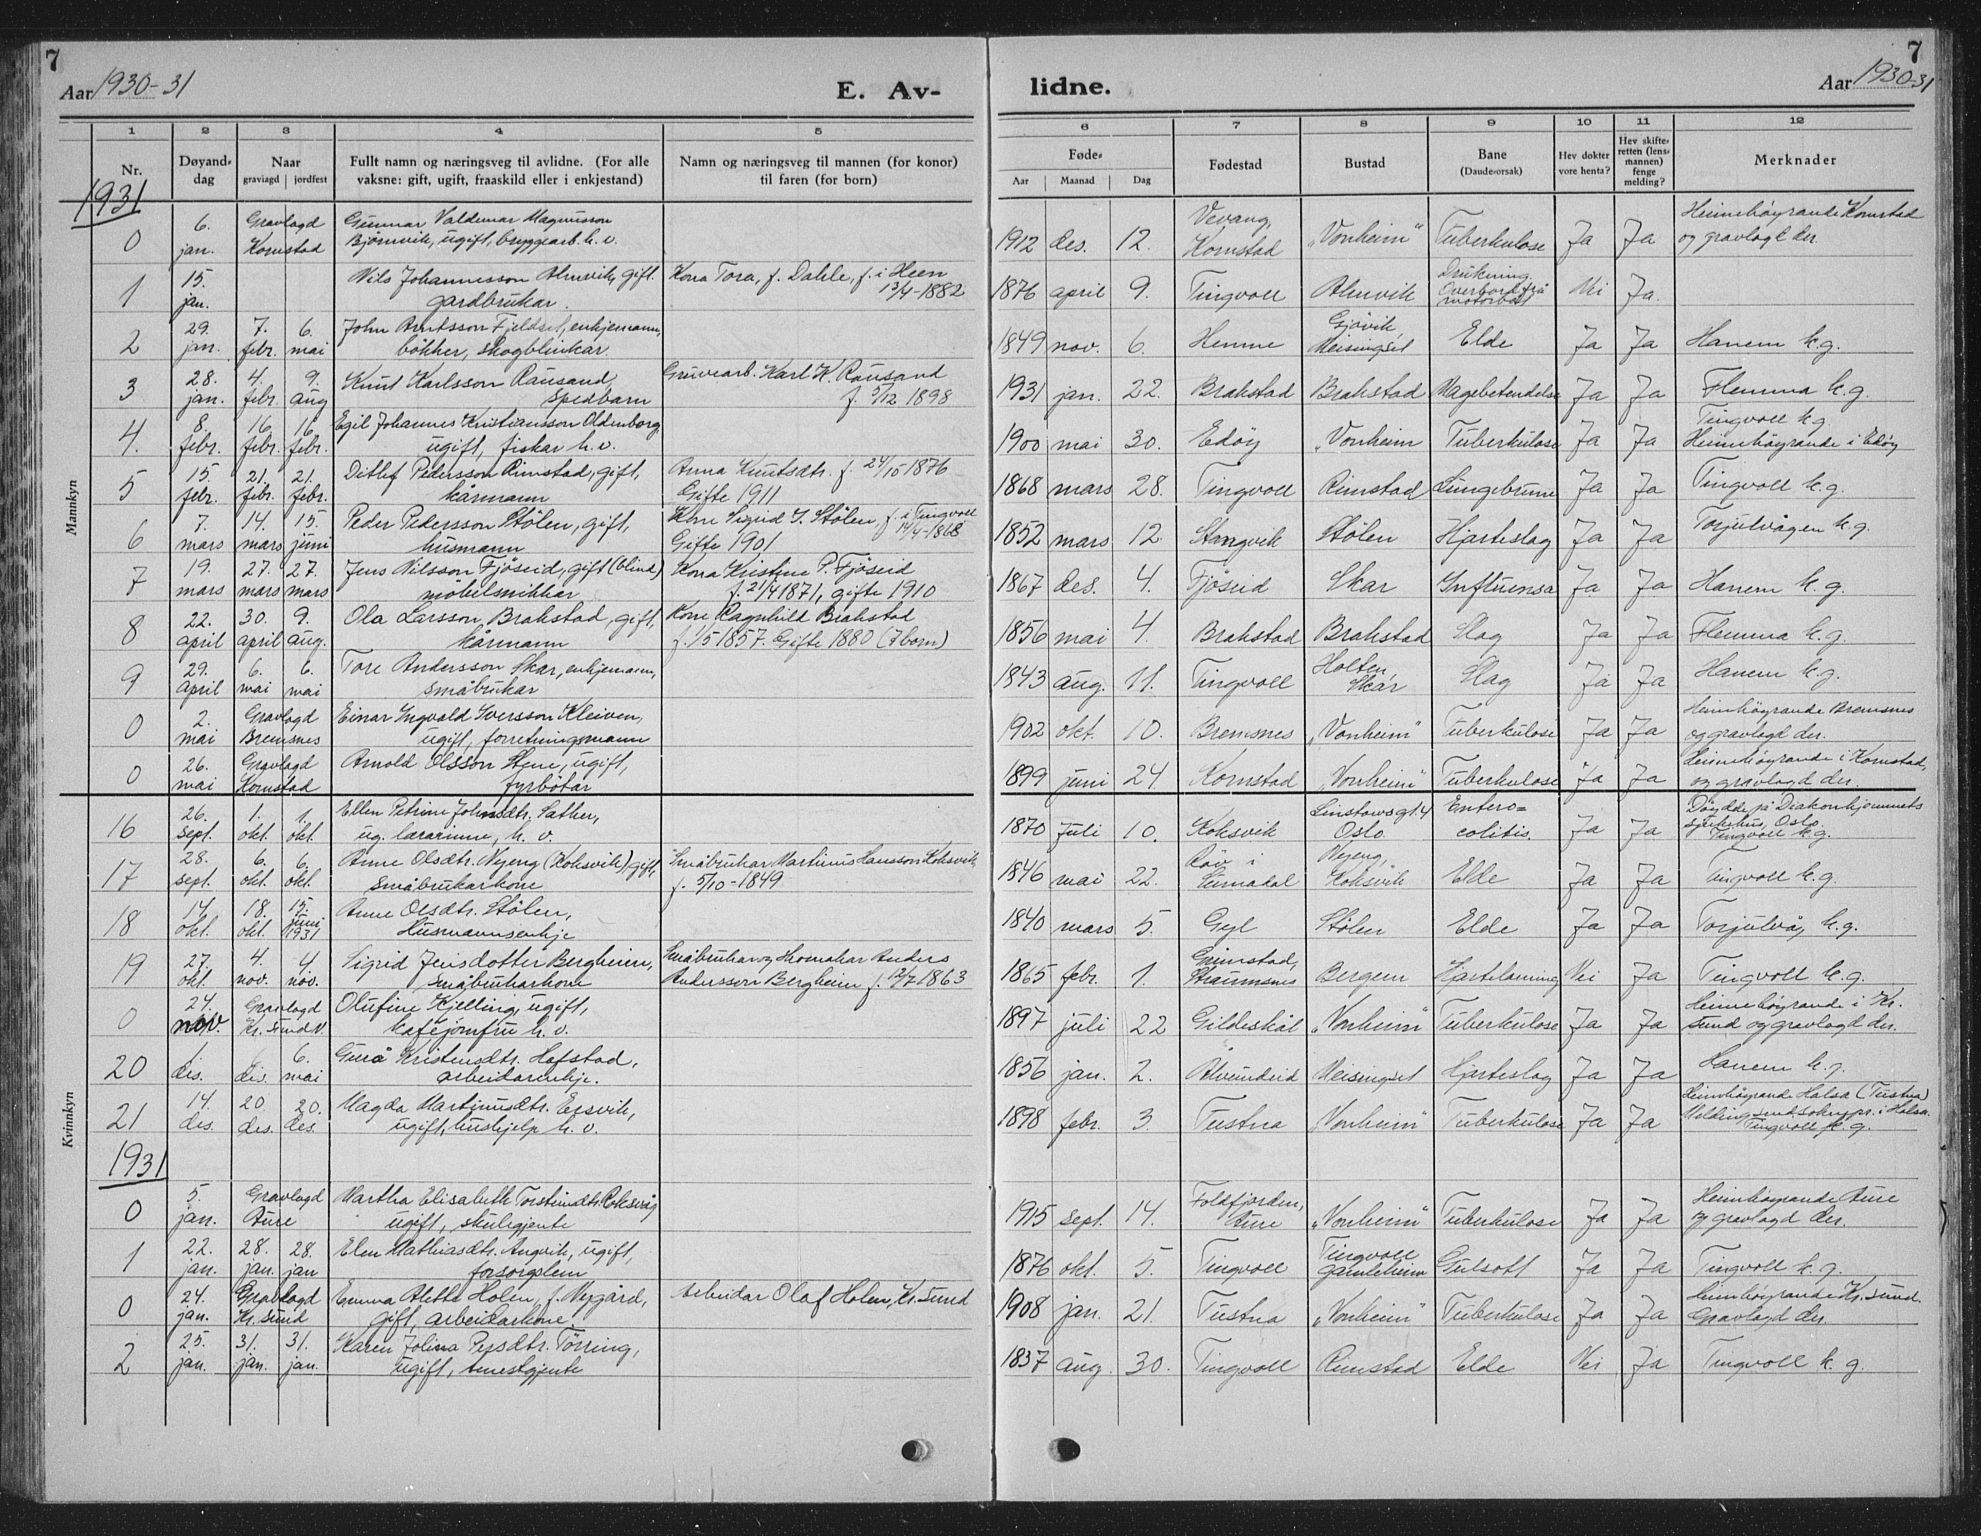 7
Aar 1930-31
E. Av-
lidne.
7
Aar 1930-31
1 2 3 4 5 6 7 8 9 10 11 12
Nr.
Døyand-dag
Naar
gravlagd | jordfest
Fullt namn og næringsveg til avlidne. (For alle
vaksne: gift, ugift, fraaskild eller i enkjestand)
Namn og næringsveg til mannen (for konor)
til faren (for born)
Føde-
Aar Maanad Dag
Fødestad
Bustad
Bane
(Daude-orsak)
Hev dokter
vore henta?
Hev skifte-
retten (lens-
mannen)
fenge
melding?
Merknader
Mannkyn
1931
0 6. jan. Gravlagd Kornstad Gunnar Valdemar Magnusson
Bjørnvik, ugift, bryggearb. h. v.
1912 des. 12. Vevang, Kornstad "Vonheim" Tuberkulose Ja Ja Heimehøyrande Kornstad
og gravlagt der.
1 15. jan. Nils Johannesson Almvik, gift.
gardbrukar.
Kona Tora, f. Dahle, f. i Heen
13/4-1882
1876 april 9. Tingvoll Almvik Drukning. Overbord frå motorbåt Nei Ja.
2 29. jan. 7. febr. 6. mai John Arntsson Fjeldset, enkjemann,
bøkker, skogblinkar
1849 nov. 6. Henne Gjøvik, Meisingset Elde Ja Ja Hanem k.g.
3 28. jan. 4. febr. 9. aug Knut Karlsson Rausand,
spedbarn
Gruvearb. Karl K. Rausand
f. /12 1898
1931 jan. 22. Brakstad Brakstad Magebetendelse Ja Ja Flemma k.g.
4. 8. febr. 16. febr. 16. febr. Egil Johannes Kristiansson Oldenborg,
ugift, fiskar h. v.
1900 mai 30. Edøy "Vonheim Tuberkulose Ja Ja Tingvoll kg.
Heimehøyrande i Edøy
5 15. febr. 21. febr. 21. febr. Ditlef Pedersson Rimstad, gift,
kårmann
Anna Knutsdtr. f. 24/10 1876
Gifte 1911
1868 mars 28. Tingvoll Rimstad Lungebrune Ja Ja Tingvoll k.g.
6 7. mars 14. mars 15. juni Peder Pedersson Stølen, gift,
husmann
Kone Sigrid J. Stølen, f. i Tingvoll
14/4-1868
Gifte 1901
1852 mars 12. Stangvik Stølen Hjarteslag Ja Ja Torjulvågen k.g.
7 19. mars 27. mars 27. mars Jens Nilsson Fjøseid, gift (blind)
møbelsnikkar
Kona Kristine P. Fjøseid
f. 21/4 1871, gifte 1910
1867 des. 4. Fjøseid Skar Influensa Ja Ja Hanem k.g.
8 22. april 30. april 9. aug. Ola Larsson, Brakstad, gift,
kårmann
Kone Ragnhild Brakstad
f. 1/5 1857. Gifte 1880 (7 born)
1856 mai 4. Brakstad Brakstad Slag Ja Ja Flemma k.g.
9 29. april 6. mai 6. mai Tore Andersson Skar, enkjemann,
småbrukar
1843 aug. 11. Tingvoll Holten, Skar Slag Ja Ja Hanem k.g.
0 2. mai Gravlagd Bremsnes Einar Ingvald Iversson Kleiven,
ugift, forretningsmann
1902 okt. 10. Bremsnes "Vonheim" Tuberkulose Ja Ja Heimehøyrande Bremsnes
og gravlagd der.
0 26. mai Gravlagd Kornstad Arnold Olsson Stene, ugift,
fyrbøtar
1899 juni 24 Kornstad "Vonheim" Tuberkulose Ja Ja Heimehøyrande i Kornstad,
og gravlagd der.
Kvinnkyn
16 26. sept. 1. okt. 1. okt. Ellen Petrine Johnsdtr. Sæther,
ug. lærarinne, h. v.
1870 juli 10. Koksvik Linstowsgt. 4 Oslo Entero=colitis. Ja Ja Døydde på Diakonhjemmets
sjukehus, Oslo.
Tingvoll k.g.
17 28. sept. 6. okt. 6. okt. Anne Olsdtr. Nyeng (Koksvik), gift,
småbrukarkone
Småbrukar Martinus Hansson Koksvik
f. 5/10-1849
1846 mai 22. Røv i Surnadal Nyeng, Koksvik Elde Ja Ja Tingvoll k.g.
18 14. okt. 18. okt. 15. juni 1931 Anne Olsdtr. Stølen,
Husmannsenkje
1840 mars 5. Gyl Stølen Elde Ja Ja Torjulvåg k.g.
19 27. okt. 4. nov. 4 nov. Sigrid Jensdotter Bergheim,
småbrukarkone
Småbrukar og skomakar Anders
Andersson Bergheim f. 12/7 1863
1865 febr. 1. Grimstad, Straumsnes Bergem Hjartelaming Nei Ja Tingvoll k.g.
0 24. nov. Gravlagd Kr. sund N. Olufine Kjelling, ugift,
kaféjomfru h. v.
1897 juli 22 Gildeskål "Vonheim" Tuberkulose Ja Ja Heimehøyrande i Kr.
sund og gravlagd der.
20 1. des. 6. des. 6. mai Gurå Kristensdtr. Hafstad,
arbeidarenkje.
1856 jan. 2. Ålvundeid Meisingset Hjarteslag Ja Ja Hanem k.g.
21 14. des. 20. des. 20. des. Magda Martinusdtr. Ersvik,
ugift, hushjelp h. v.
1898 febr. 3 Tustna "Vonheim" Tuberkulose Ja Ja Heimehøyrande Halsa (Tustna)
Melding send soknepr. i Halsa.
Tingvoll k.g.
1931
0 5. jan. Gravlagd Aure Martha Elisabeth Torsteinsdtr. Roksvåg
ugift, skulegjente
1915 sept. 14. Foldfjorden, Aure "Vonheim" Tuberkulose Ja Ja Heimehøyrande Aure
og gravlagd der.
1 22. jan. 28. jan. 28. jan Elen Mathiasdtr. Angvik, ugift,
forsorgslem
1876 okt. 5. Tingvoll Tingvoll gamleheim Gulsott Ja Ja Tingvoll k.g.
0 24. jan. Gravlagd Kr. sund Emma Alette Holen, f. Nygård,
gift, arbeidarkone
Arbeidar Olaf Holen, Kr. sund
1908 jan. 21. Tustna "Vonheim" Tuberkulose Ja Ja Heimehøyrande Kr. sund.
Gravlagd der.
2 25. jan. 31. jan. 31. jan. Karen Jolina Persdtr. Tørring,
ugift, tenestgjente
1837 aug. 30. Tingvoll Rimstad Elde Nei Ja Tingvoll k.g.